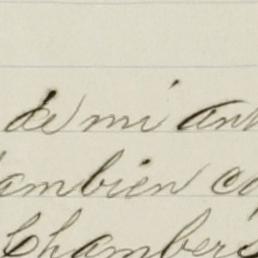 de mi
ambien
Chambers